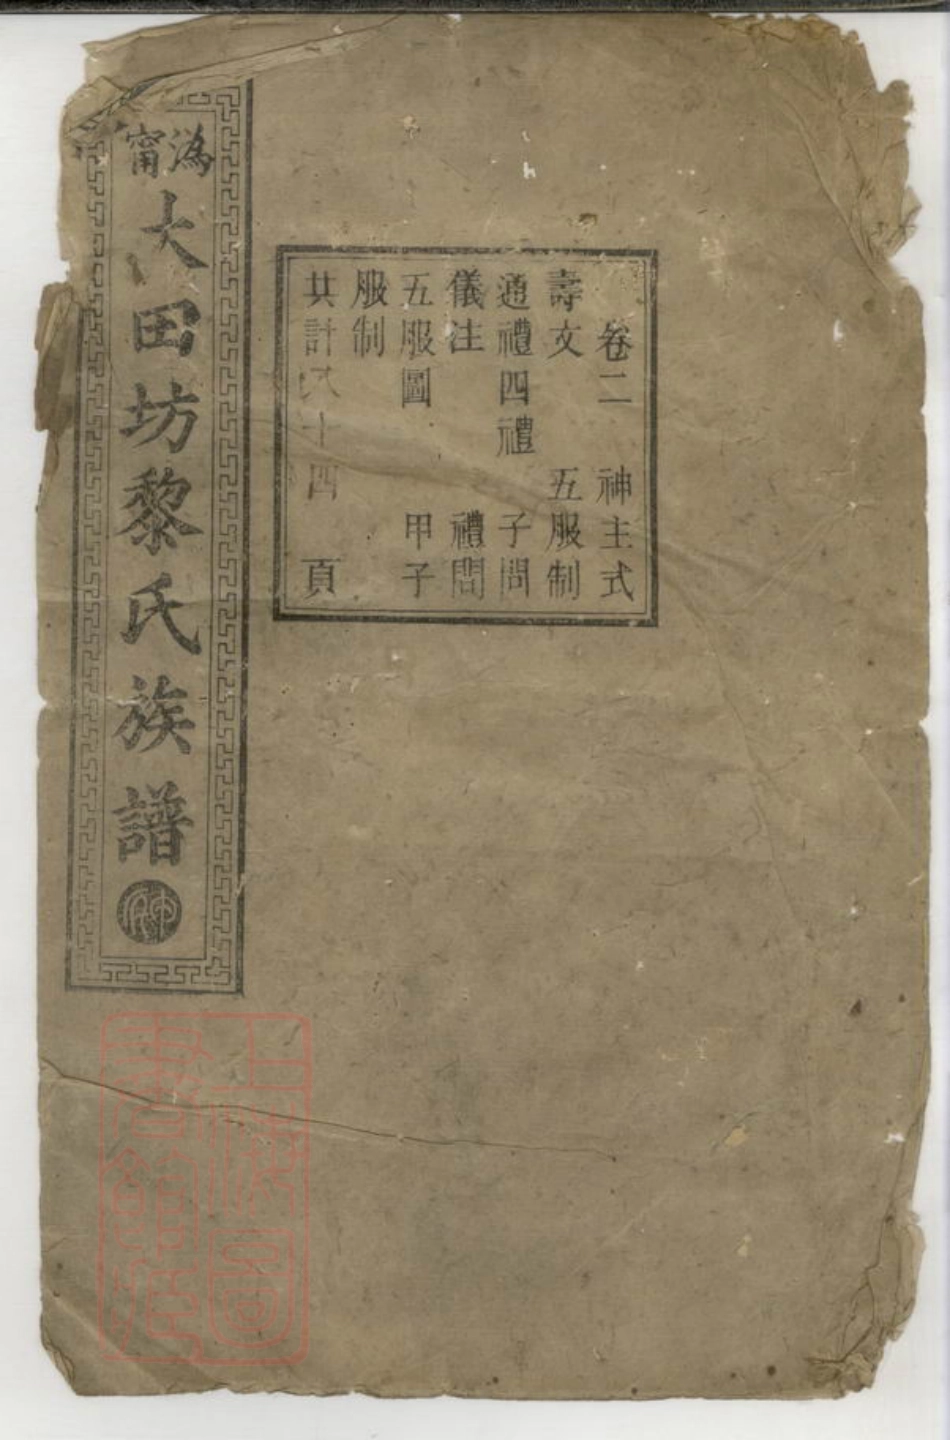 溈甯
大田坊黎氏族譜
卷二 神主式
壽文 五服制
通禮四禮 子問
儀注 禮問
五服圖 甲子
服制
共計 十四頁
上海圖書館藏